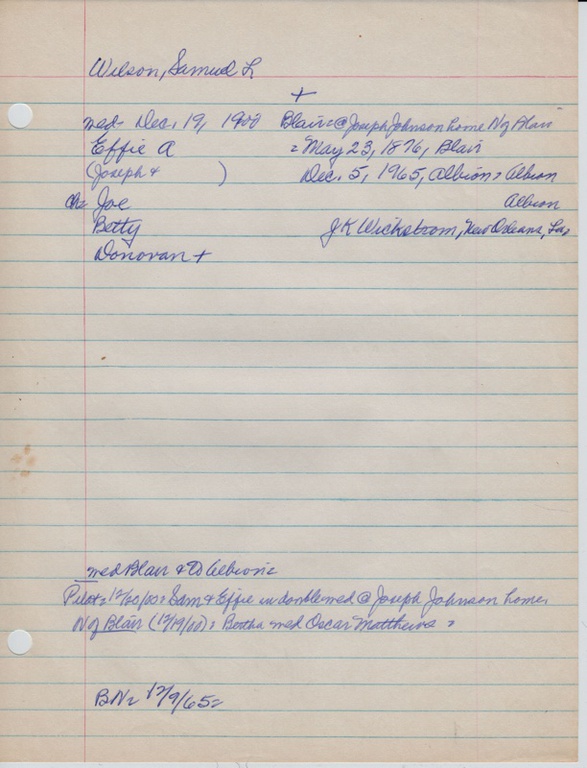 Wilson, Samuel L
+
med- Dec. 19, 1900 Blair = @ Joseph Johnson home N of Blair
Effie A = May 23, 1876, Blair
(Joseph + ) Dec. 5, 1965, Albion = Albion
ch= Joe Albion
Betty J K Wickstrom, New Orleans, La,
Donovan +
med Blair + to Albion =
Pilot = 12/20/00 = Sam + Effie in double med @ Joseph Johnson home,
N of Blair (12/19/00) = Bertha med Oscar Matthews =
BN = 12/9/65 =